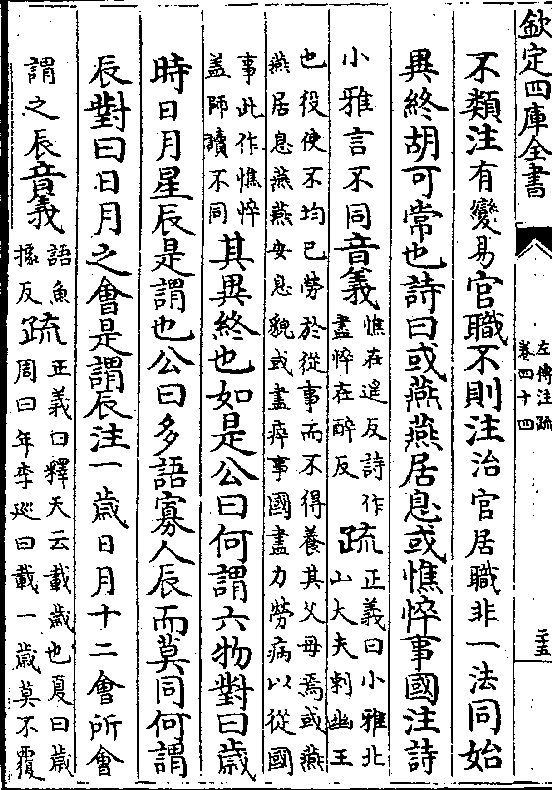 欽定四庫全書
左傳注疏
卷四十四
二十五
不類注有變易官職不則注治官居職非一法同始
異終胡可常也詩曰或燕燕居息或憔悴事國注詩
小雅言不同音義憔在遥反詩作
盡悴在醉反疏正義曰小雅北
山大夫刺幽王
也役使不均已勞於從事而不得養其父母焉或燕
燕居息燕燕安息貌或盡瘁事國盡力勞病以從國
事此作憔悴
蓋師讀不同其異終也如是公曰何謂六物對曰歲
時日月星辰是謂也公曰多語寡人辰而莫同何謂
辰對曰日月之會是謂辰注一歲日月十二會所會
謂之辰音義語魚
據反疏正義曰釋天云載歲也夏曰歲
周曰年李廵曰載一歲莫不覆